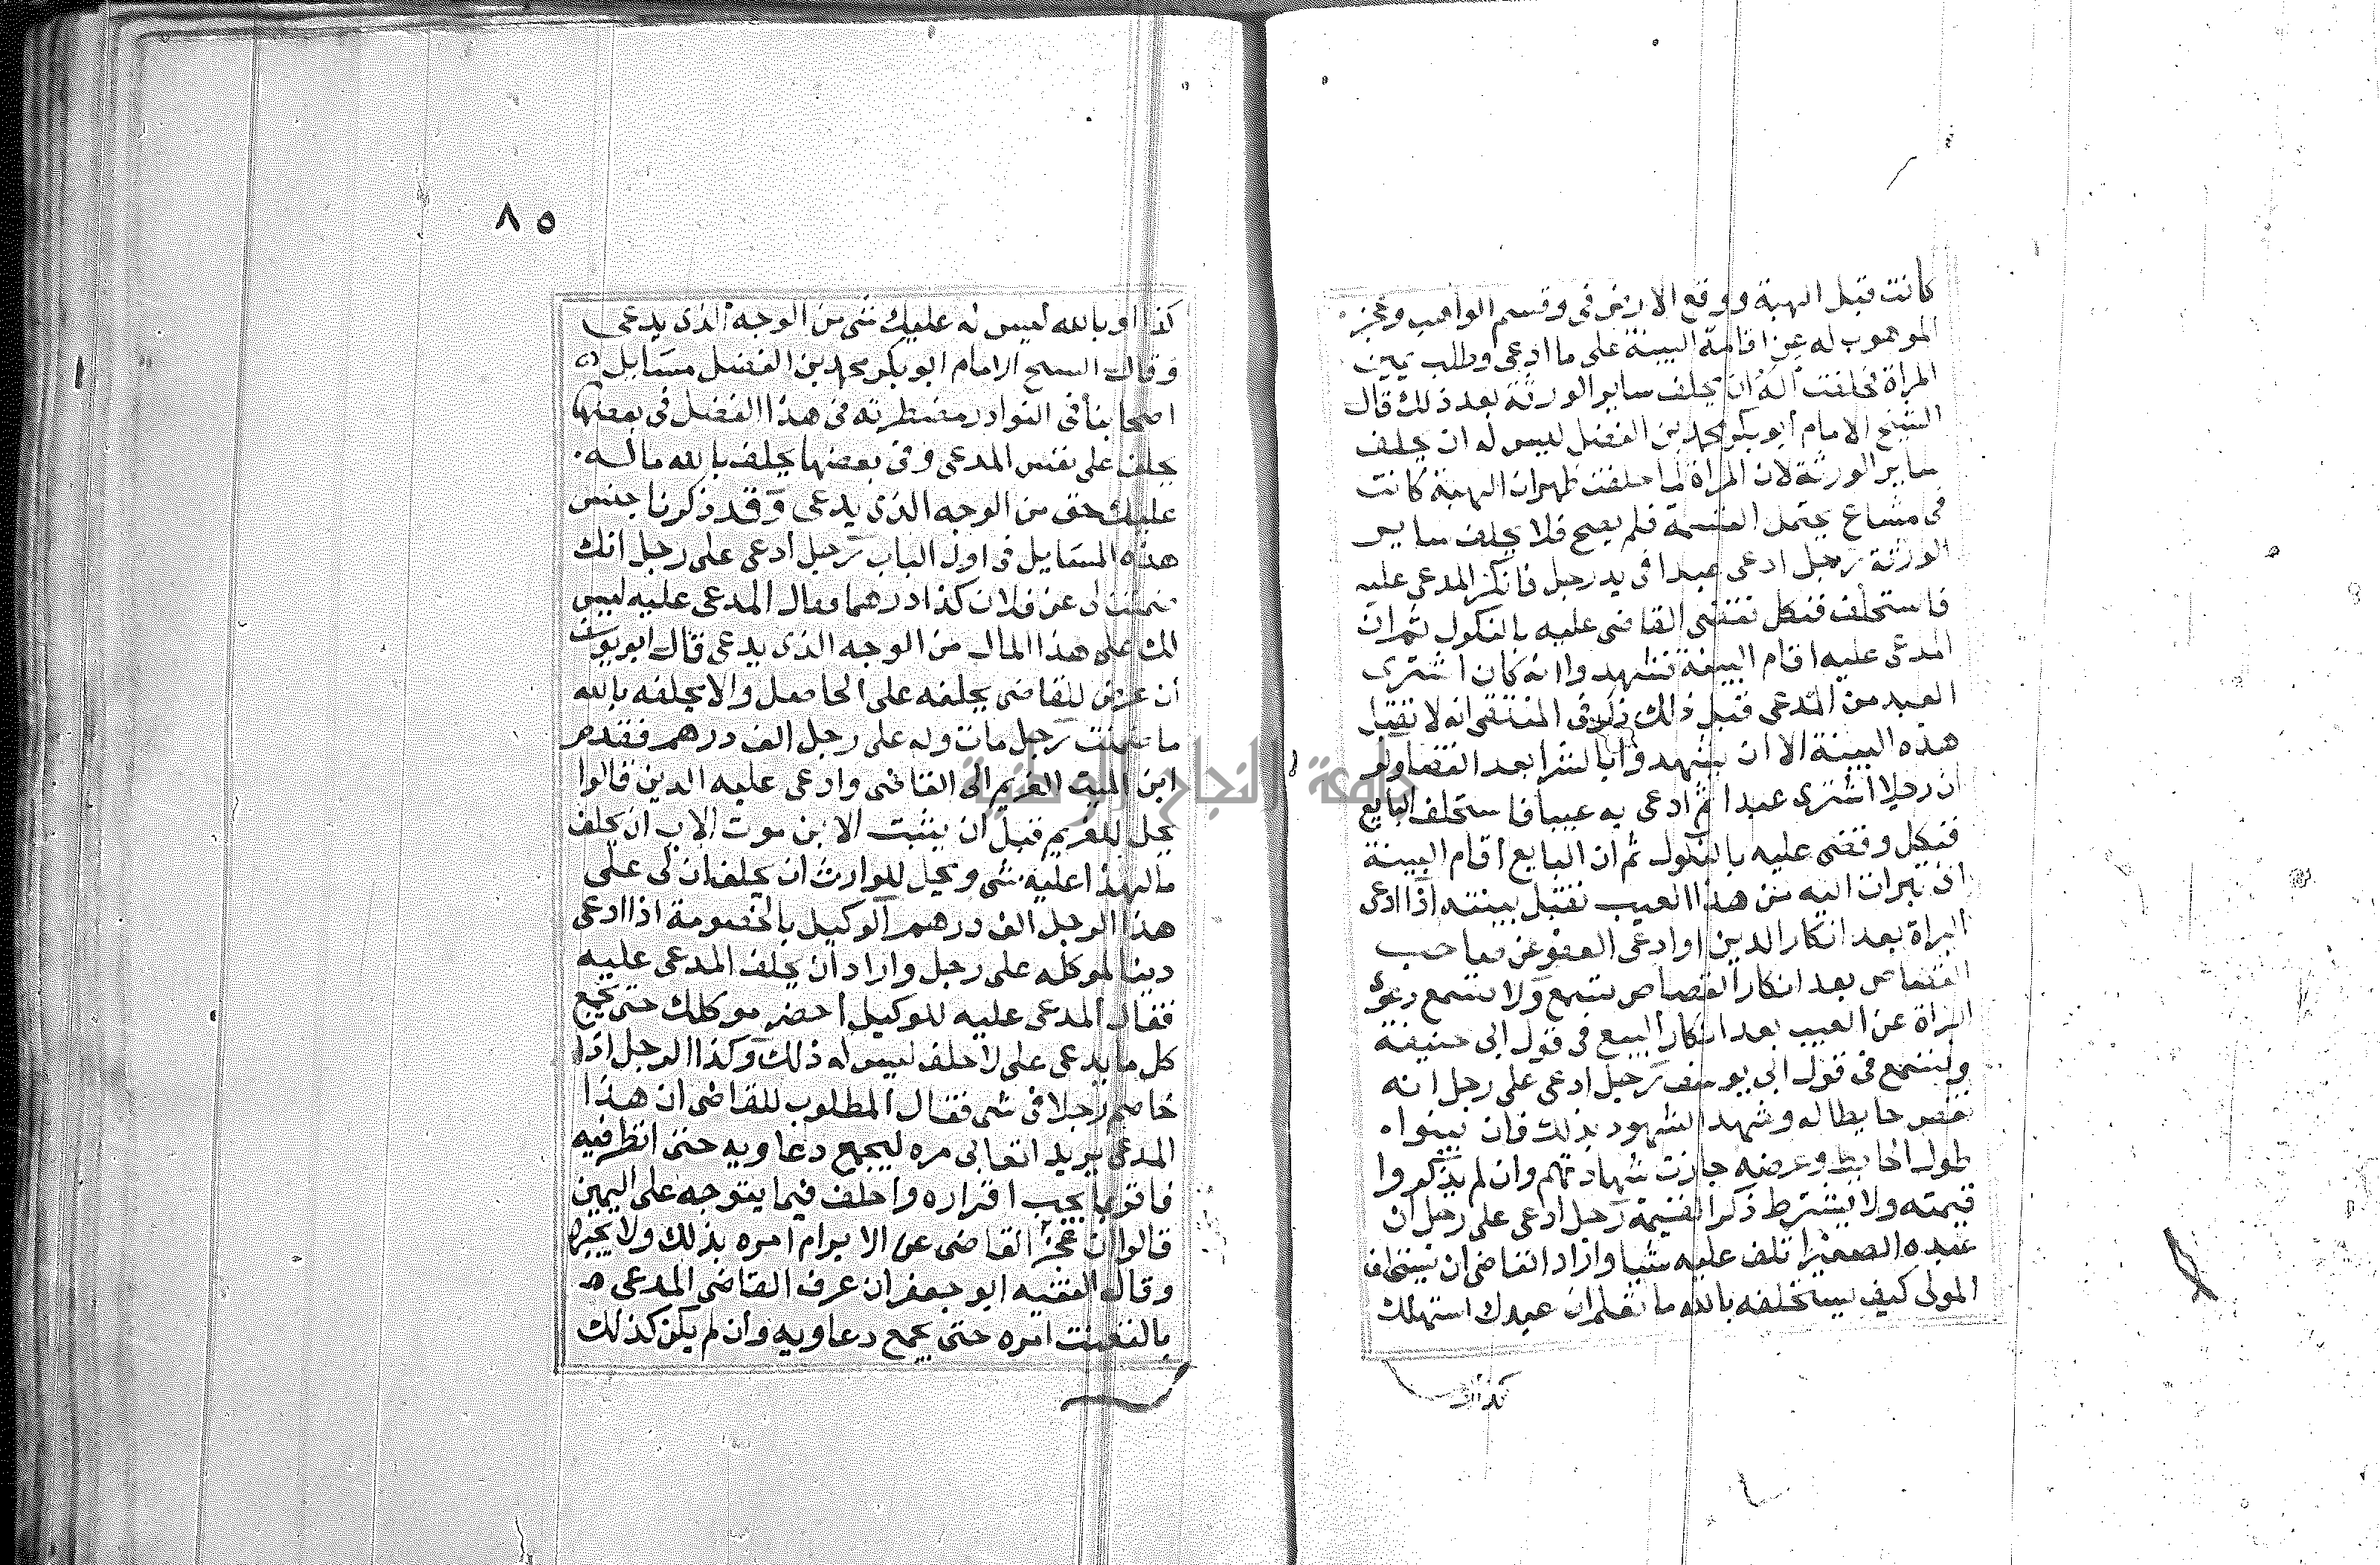 كانت قبل الهبة ووقع الارض فى وقسم الواهب وعجز
الموهوب له عن اقامة البينة على ما ادعى وطلب يمين
المراة فحلفت اله ان يحلف ساير الورثة بعد ذلك قال
الشيخ الامام ابو بكر محمد بن الفضل ليس له ان يحلف
ساير الورثة لان المراة لما حلفت ظهر ان الهبة كانت
فى مشاع يحتمل القسمة فلم يصح فلا يحلف ساير
الورثة رجل ادعى عبدا فى يد رجل فانكر المدعى عليه
فاستحلف فنكل فقضى القاضى عليه بالنكول ثم ان
المدعى عليه اقام البينة فشهدوا انه كان اشترى
العبد من المدعى قبل ذلك ذكر فى المنتقى انه لا تقبل
هذه البينة الا ان يشهدوا بالشرا بعد القضا ولو
ان رجلا اشترى عبدا ثم ادعى به عيبا فاستحلف البايع
فنكل وقضى عليه بالنكول ثم ان البايع اقام البينة
ان تبرات اليه من هذا العيب تقبل بينته اذا ادعى
البراة بعد انكار الدين او ادعى العفو عن صاحب
القصاص بعد انكار القصاص تسمع ولا تسمع دعوى
البراة عن العيب بعد انكار البيع فى قول ابى حنيفة
وتسمع فى قول ابى يوسف رجل ادعى على رجل انه
حايطا له وشهد الشهود بذلك فان بينوا
طول الحايط وعرضه جازت شهادتهم وان لم يذكروا
قيمته ولا يشترط ذكر القيمة رجل ادعى على رجل ان
عبده الصغير اتلف عليه شيا واراد القاضى ان يستحلف
المولى كيف يستحلفه بالله ما تعلم ان عبدك استهلك
كذا او
٨٥
كذا او بالله ليس له عليك شى من الوجه الذى يدعى
وقال الشيخ الامام ابو بكر محمد بن الفضل مسايل
اصحابنا فى النوادر مضطربة فى هذا الفضل فى بعضها
يحلف على نفس المدعى وفى بعضها يحلف بالله ما له
عليك حق من الوجه الذى يدعى وقد ذكرنا جنس
هذه المسايل فى اول الباب رجل ادعى على رجل انك
ضمنت لى عن فلان كذا درهما وقال المدعى عليه ليس
لك على هذا المال من الوجه الذى يدعى قال ابو يوسف
ان عرض للقاضى يحلفه على الحاصل والا يحلفه بالله
ما ضمنت رجل مات وله على رجل الف درهم فقدم
ابن الميت الغريم الى القاضى وادعى عليه الدين قالوا
يحل للغريم قبل ان يثبت الابن موت الاب ان يحلف
ما لهذا عليه شى ويحل للوارث ان يحلف ان لى على
هذا الرجل الف درهم الوكيل بالخصومة اذا ادعى
دينا لموكله على رجل واراد ان يحلف المدعى عليه
فقال المدعى عليه للوكيل احضر موكلك حتى يجمع
كل ما يدعى على لاحلف ليس له ذلك وكذا الرجل اذا
خاصم رجلا فى شى فقال المطلوب للقاضى ان هذا
المدعى يريد اتعابى مره ليجمع دعاويه حتى انظر فيه
فاقر بما يجب اقراره واحلف فيما يتوجه على اليمين
قالوا ان عجز القاضى عن الابرام امره بذلك ولا يجبره
وقال الفقيه ابو جعفر ان عرف القاضى المدعى
بالتعنت امره حتى يجمع دعاويه وان لم يكن كذلك
جامعة النجاح الوطنية